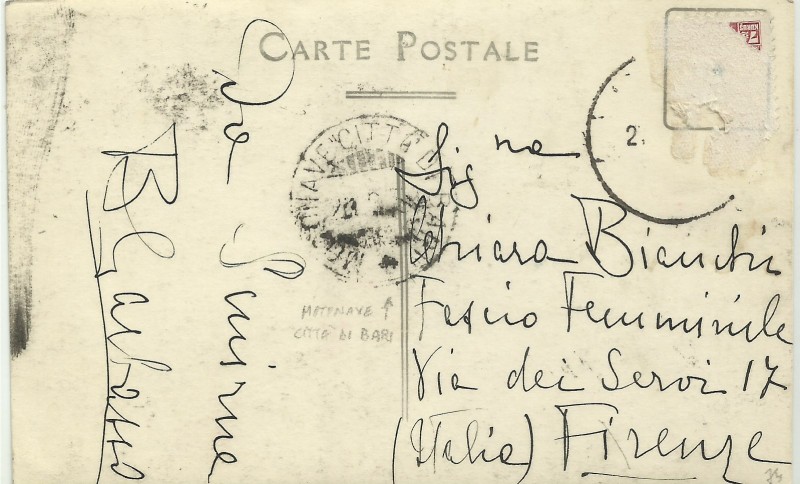 CARTE POSTALE
Da Smirne
B Garbasso
MOTONAVE "CITTÀ DI BARI"
2.
MOTONAVE ↑
CITTÀ DI BARI
Sig na
Chiara Bianchi
Fascio Femminile
Via dei Servi 17
(Italia) Firenze